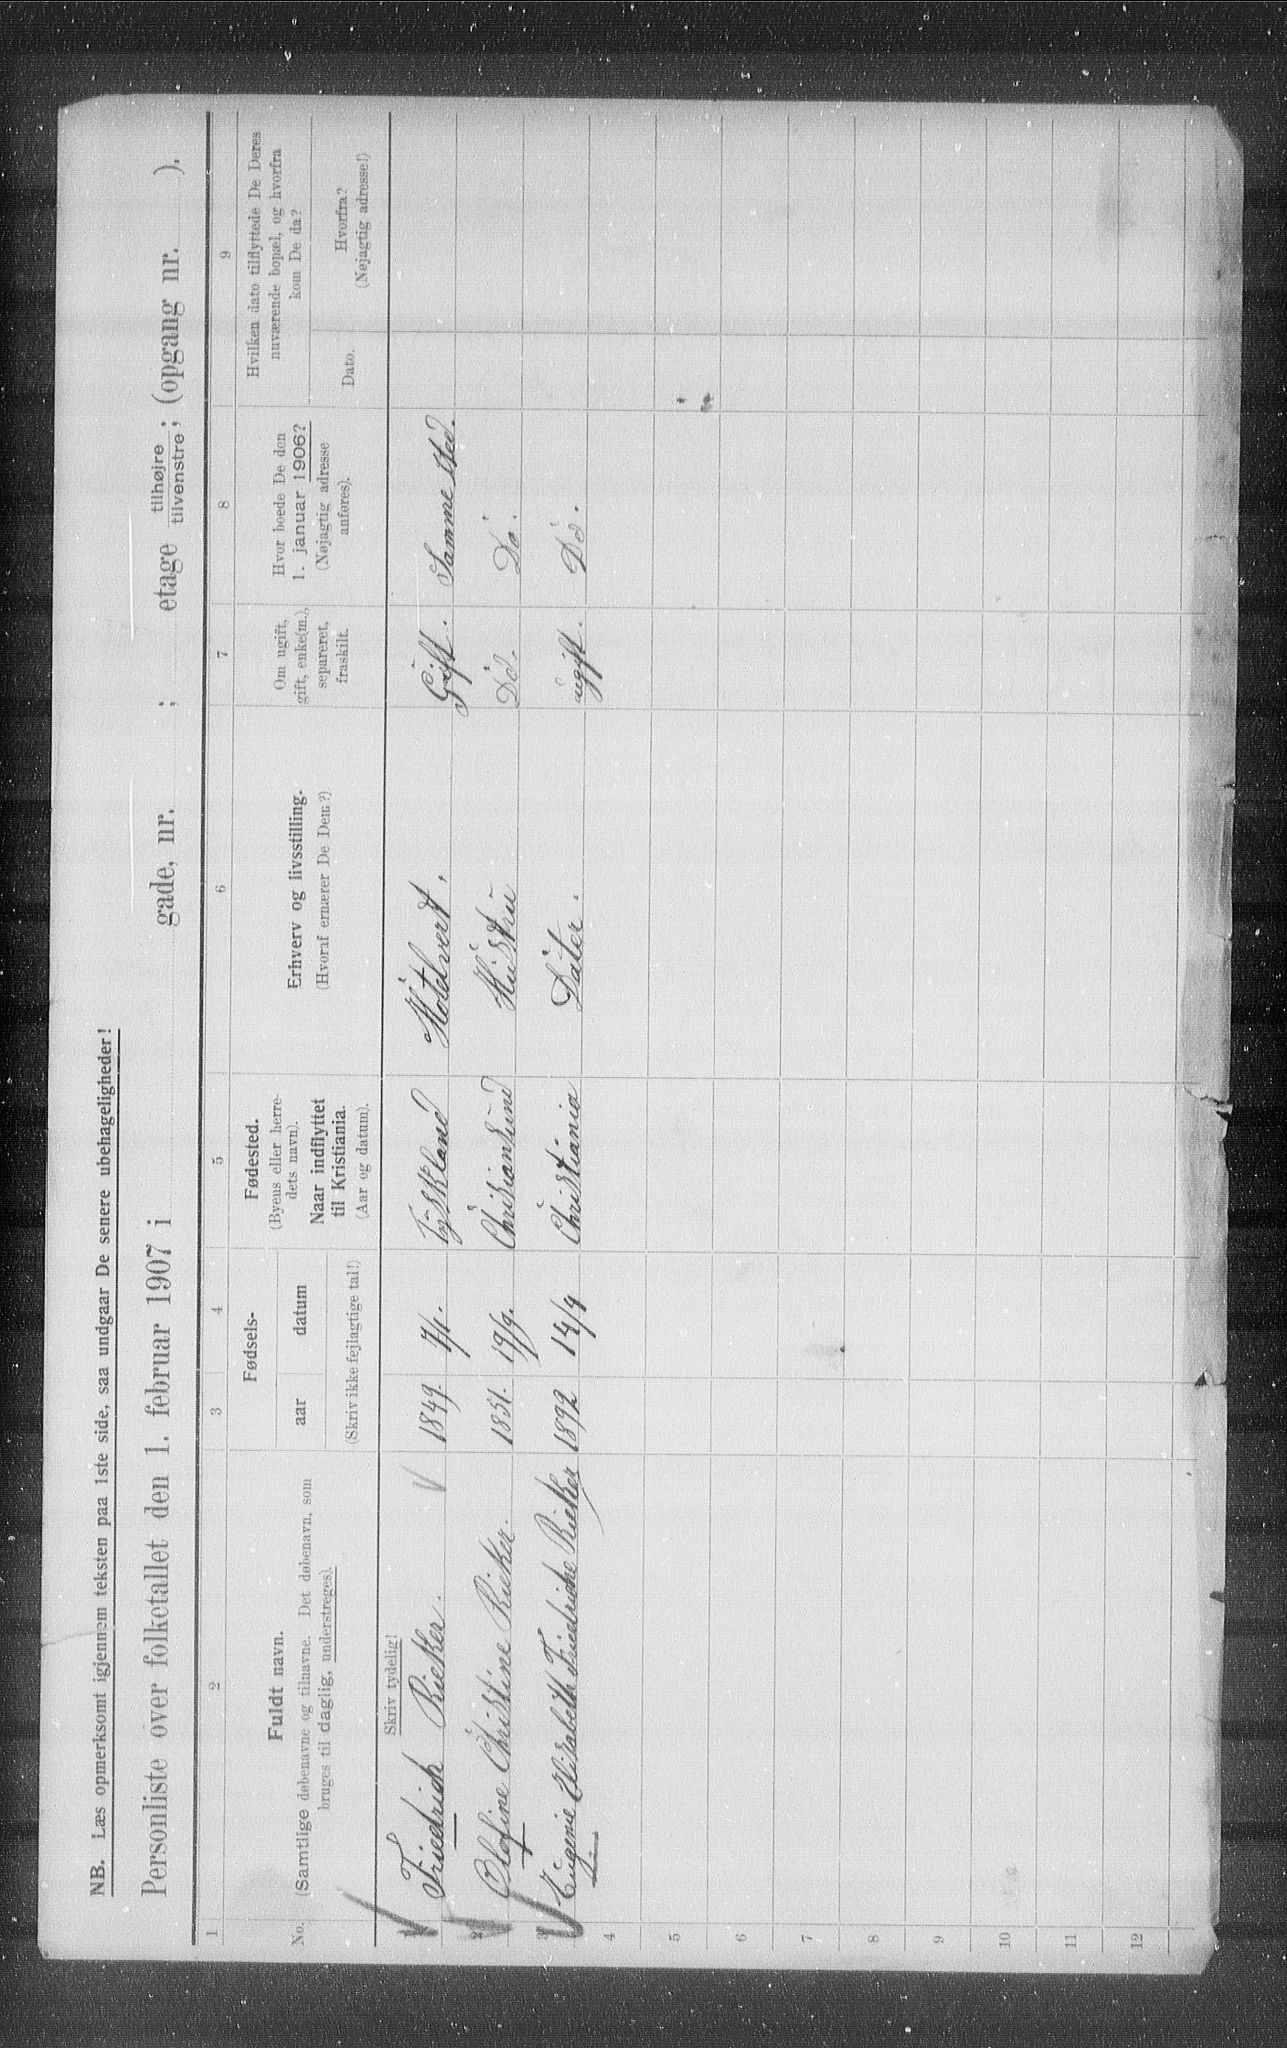 NB. Læs opmerksomt igjennem teksten paa 1ste side, saa undgaar De senere ubehageligheder!
Personliste over folketallet den 1. februar 1907 i gade, nr. ; etage tilhøjre tilvenstre; (opgang nr. ).
1 2 3 4 5 6 7 8 9
No.
Fuldt navn.
(Samtlige døbenavne og tilnavne. Det døbenavn, som
bruges til daglig, understreges).
Fødsels-
aar datum
(Skriv ikke fejlagtige tal!)
Fødested.
(Byens eller herre-
dets navn).
Naar indflyttet
til Kristiania.
(Aar og datum).
Erhverv og livsstilling.
(Hvoraf ernærer De Dem?)
Om ugift,
gift, enke(m.),
separeret,
fraskilt.
Hvor boede De den
1. januar 1906?
(Nøjagtig adresse
anføres).
Hvilken dato tilflyttede De Deres
nuværende bopæl, og hvorfra
kom De da?
Dato.
Hvorfra?
(Nøjagtig adresse!)
Skriv tydelig!
Friedrich Rieker. 1849. 7/1. Tyskland Hotelvert. Gift. Samme sted.
2 Olefine Christine Rieker. 1851. 19/9. Christiansund Hustru Do. Do.
3 Eugenie Elisabeth Friedricke Rieker 1892 14/9 Christiania Datter. ugift. Do.
4
5
6
7
8
9
10
11
12